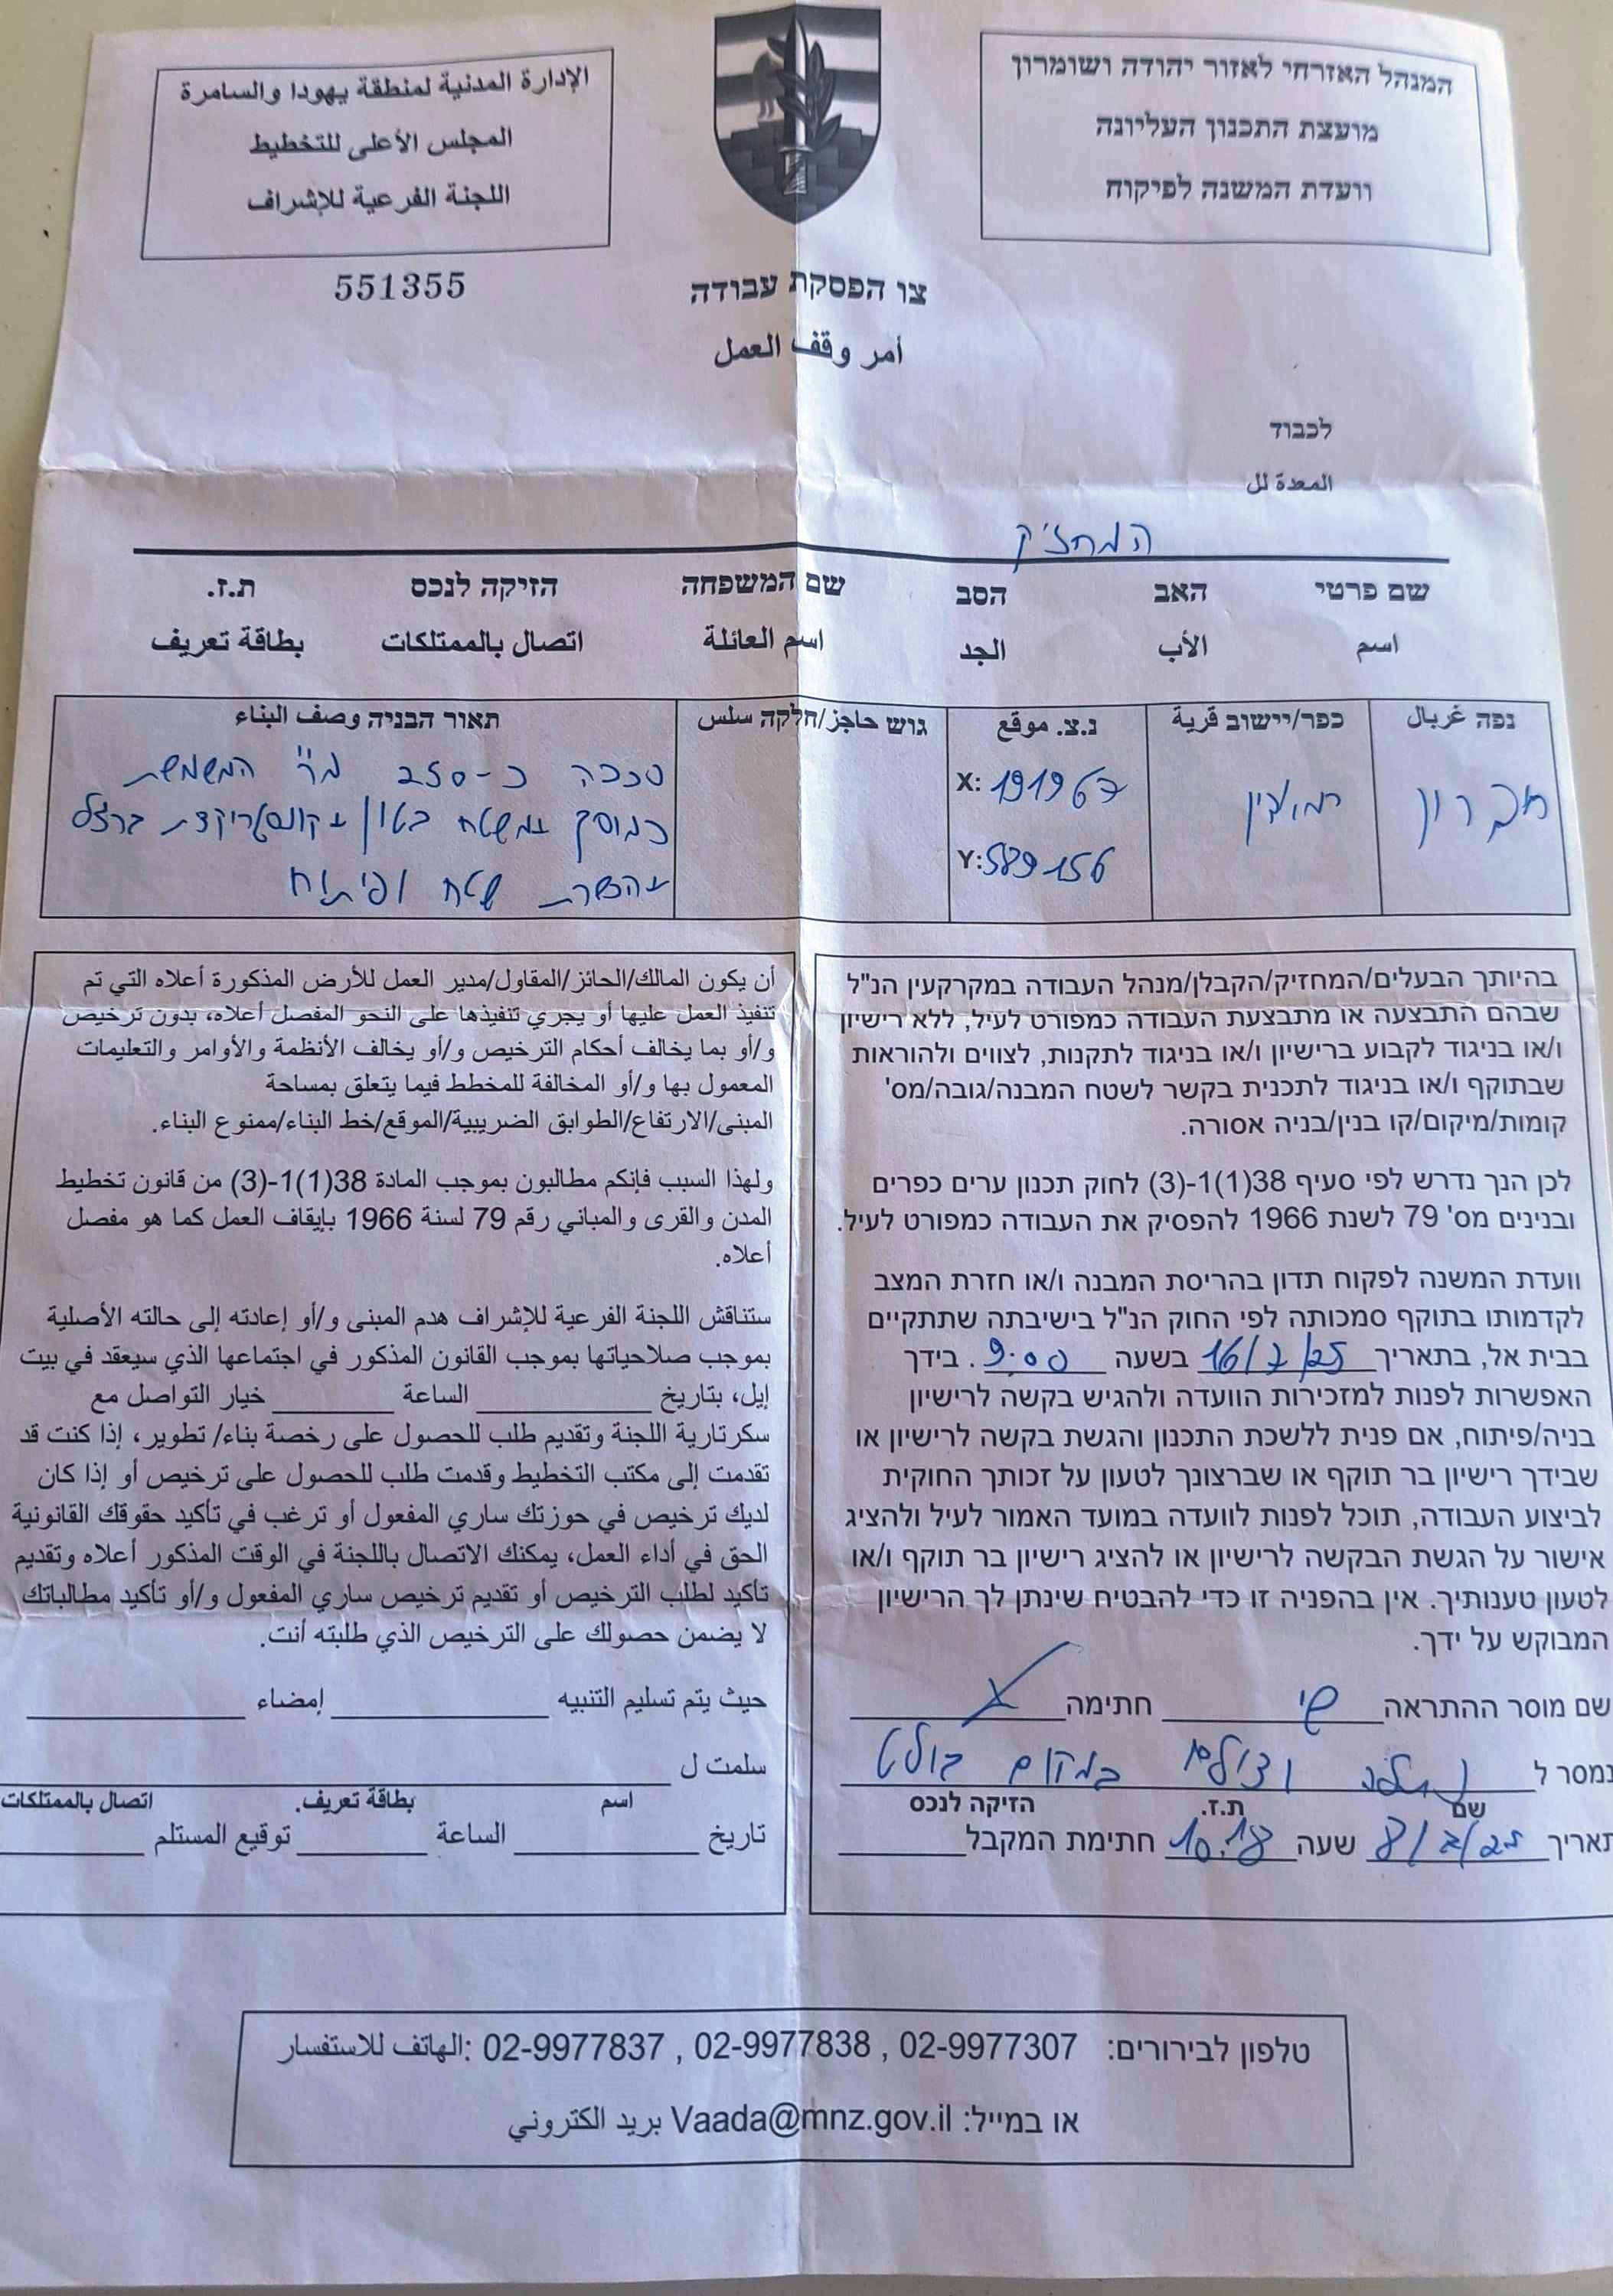 המנהל האזרחי לאזור יהודה ושומרון
מועצת התכנון העליונה
וועדת המשנה לפיקוח
الإدارة المدنية لمنطقة يهودا والسامرة
المجلس الأعلى للتخطيط
اللجنة الفرعية للإشراف
551355
צו הפסקת עבודה
أمر وقف العمل
לכבוד
المعدة لل
המחזיק
שם פרטי האב הסב שם המשפחה הזיקה לנכס ת.ז.
اسم الأب الجد اسم العائلة اتصال بالممتلكات بطاقة تعريف
נפה غربال כפר/יישוב قرية נ.צ. موقع גוש حاجز/חלקה سلس תאור הבניה وصف البناء
חברון
X: 191967
Y: 589156
סככה כ-250 מ"ר המשמשת
כמוסך משטח בטון קונסטרוקצית ברזל
הכשרת שטח ופיתוח
בהיותך הבעלים/המחזיק/הקבלן/מנהל העבודה במקרקעין הנ"ל
שבהם התבצעה או מתבצעת העבודה כמפורט לעיל, ללא רישיון
ו/או בניגוד לקבוע ברישיון ו/או בניגוד לתקנות, לצווים ולהוראות
שבתוקף ו/או בניגוד לתכנית בקשר לשטח המבנה/גובה/מס'
קומות/מיקום/קו בנין/בניה אסורה.
לכן הנך נדרש לפי סעיף 38(1)1-(3) לחוק תכנון ערים כפרים
ובנינים מס' 79 לשנת 1966 להפסיק את העבודה כמפורט לעיל.
וועדת המשנה לפקוח תדון בהריסת המבנה ו/או חזרת המצב
לקדמותו בתוקף סמכותה לפי החוק הנ"ל בישיבתה שתתקיים
בבית אל, בתאריך 16/7/25 בשעה 9:00. בידך
האפשרות לפנות למזכירות הוועדה ולהגיש בקשה לרישיון
בניה/פיתוח, אם פנית ללשכת התכנון והגשת בקשה לרישיון או
שבידך רישיון בר תוקף או שברצונך לטעון על זכותך החוקית
לביצוע העבודה, תוכל לפנות לוועדה במועד האמור לעיל ולהציג
אישור על הגשת הבקשה לרישיון או להציג רישיון בר תוקף ו/או
לטעון טענותיך. אין בהפניה זו כדי להבטיח שינתן לך הרישיון
המבוקש על ידך.
שם מוסר ההתראה שי חתימה
נמסר ל וצולם במקום בולט
שם ת.ז. הזיקה לנכס
תאריך 8/7/25 שעה 10:18 חתימת המקבל
أن يكون المالك/الحائز/المقاول/مدير العمل للأرض المذكورة أعلاه التي تم
تنفيذ العمل عليها أو يجري تنفيذها على النحو المفصل أعلاه، بدون ترخيص
و/أو بما يخالف أحكام الترخيص و/أو يخالف الأنظمة والأوامر والتعليمات
المعمول بها و/أو المخالفة للمخطط فيما يتعلق بمساحة
المبنى/الارتفاع/الطوابق الضريبية/الموقع/خط البناء/ممنوع البناء.
ولهذا السبب فإنكم مطالبون بموجب المادة 38(1)1-(3) من قانون تخطيط
المدن والقرى والمباني رقم 79 لسنة 1966 بإيقاف العمل كما هو مفصل
أعلاه.
ستناقش اللجنة الفرعية للإشراف هدم المبنى و/أو إعادته إلى حالته الأصلية
بموجب صلاحياتها بموجب القانون المذكور في اجتماعها الذي سيعقد في بيت
إيل، بتاريخ الساعة خيار التواصل مع
سكرتارية اللجنة وتقديم طلب للحصول على رخصة بناء/ تطوير، إذا كنت قد
تقدمت إلى مكتب التخطيط وقدمت طلب للحصول على ترخيص أو إذا كان
لديك ترخيص في حوزتك ساري المفعول أو ترغب في تأكيد حقوقك القانونية
الحق في أداء العمل، يمكنك الاتصال باللجنة في الوقت المذكور أعلاه وتقديم
تأكيد لطلب الترخيص أو تقديم ترخيص ساري المفعول و/أو تأكيد مطالباتك
لا يضمن حصولك على الترخيص الذي طلبته أنت.
حيث يتم تسليم التنبيه إمضاء
سلمت ل
اسم بطاقة تعريف. اتصال بالممتلكات
تاريخ الساعة توقيع المستلم
טלפון לבירורים: 02-9977307 , 02-9977838 , 02-9977837 :الهاتف للاستفسار
או במייל: Vaada@mnz.gov.il بريد الكتروني